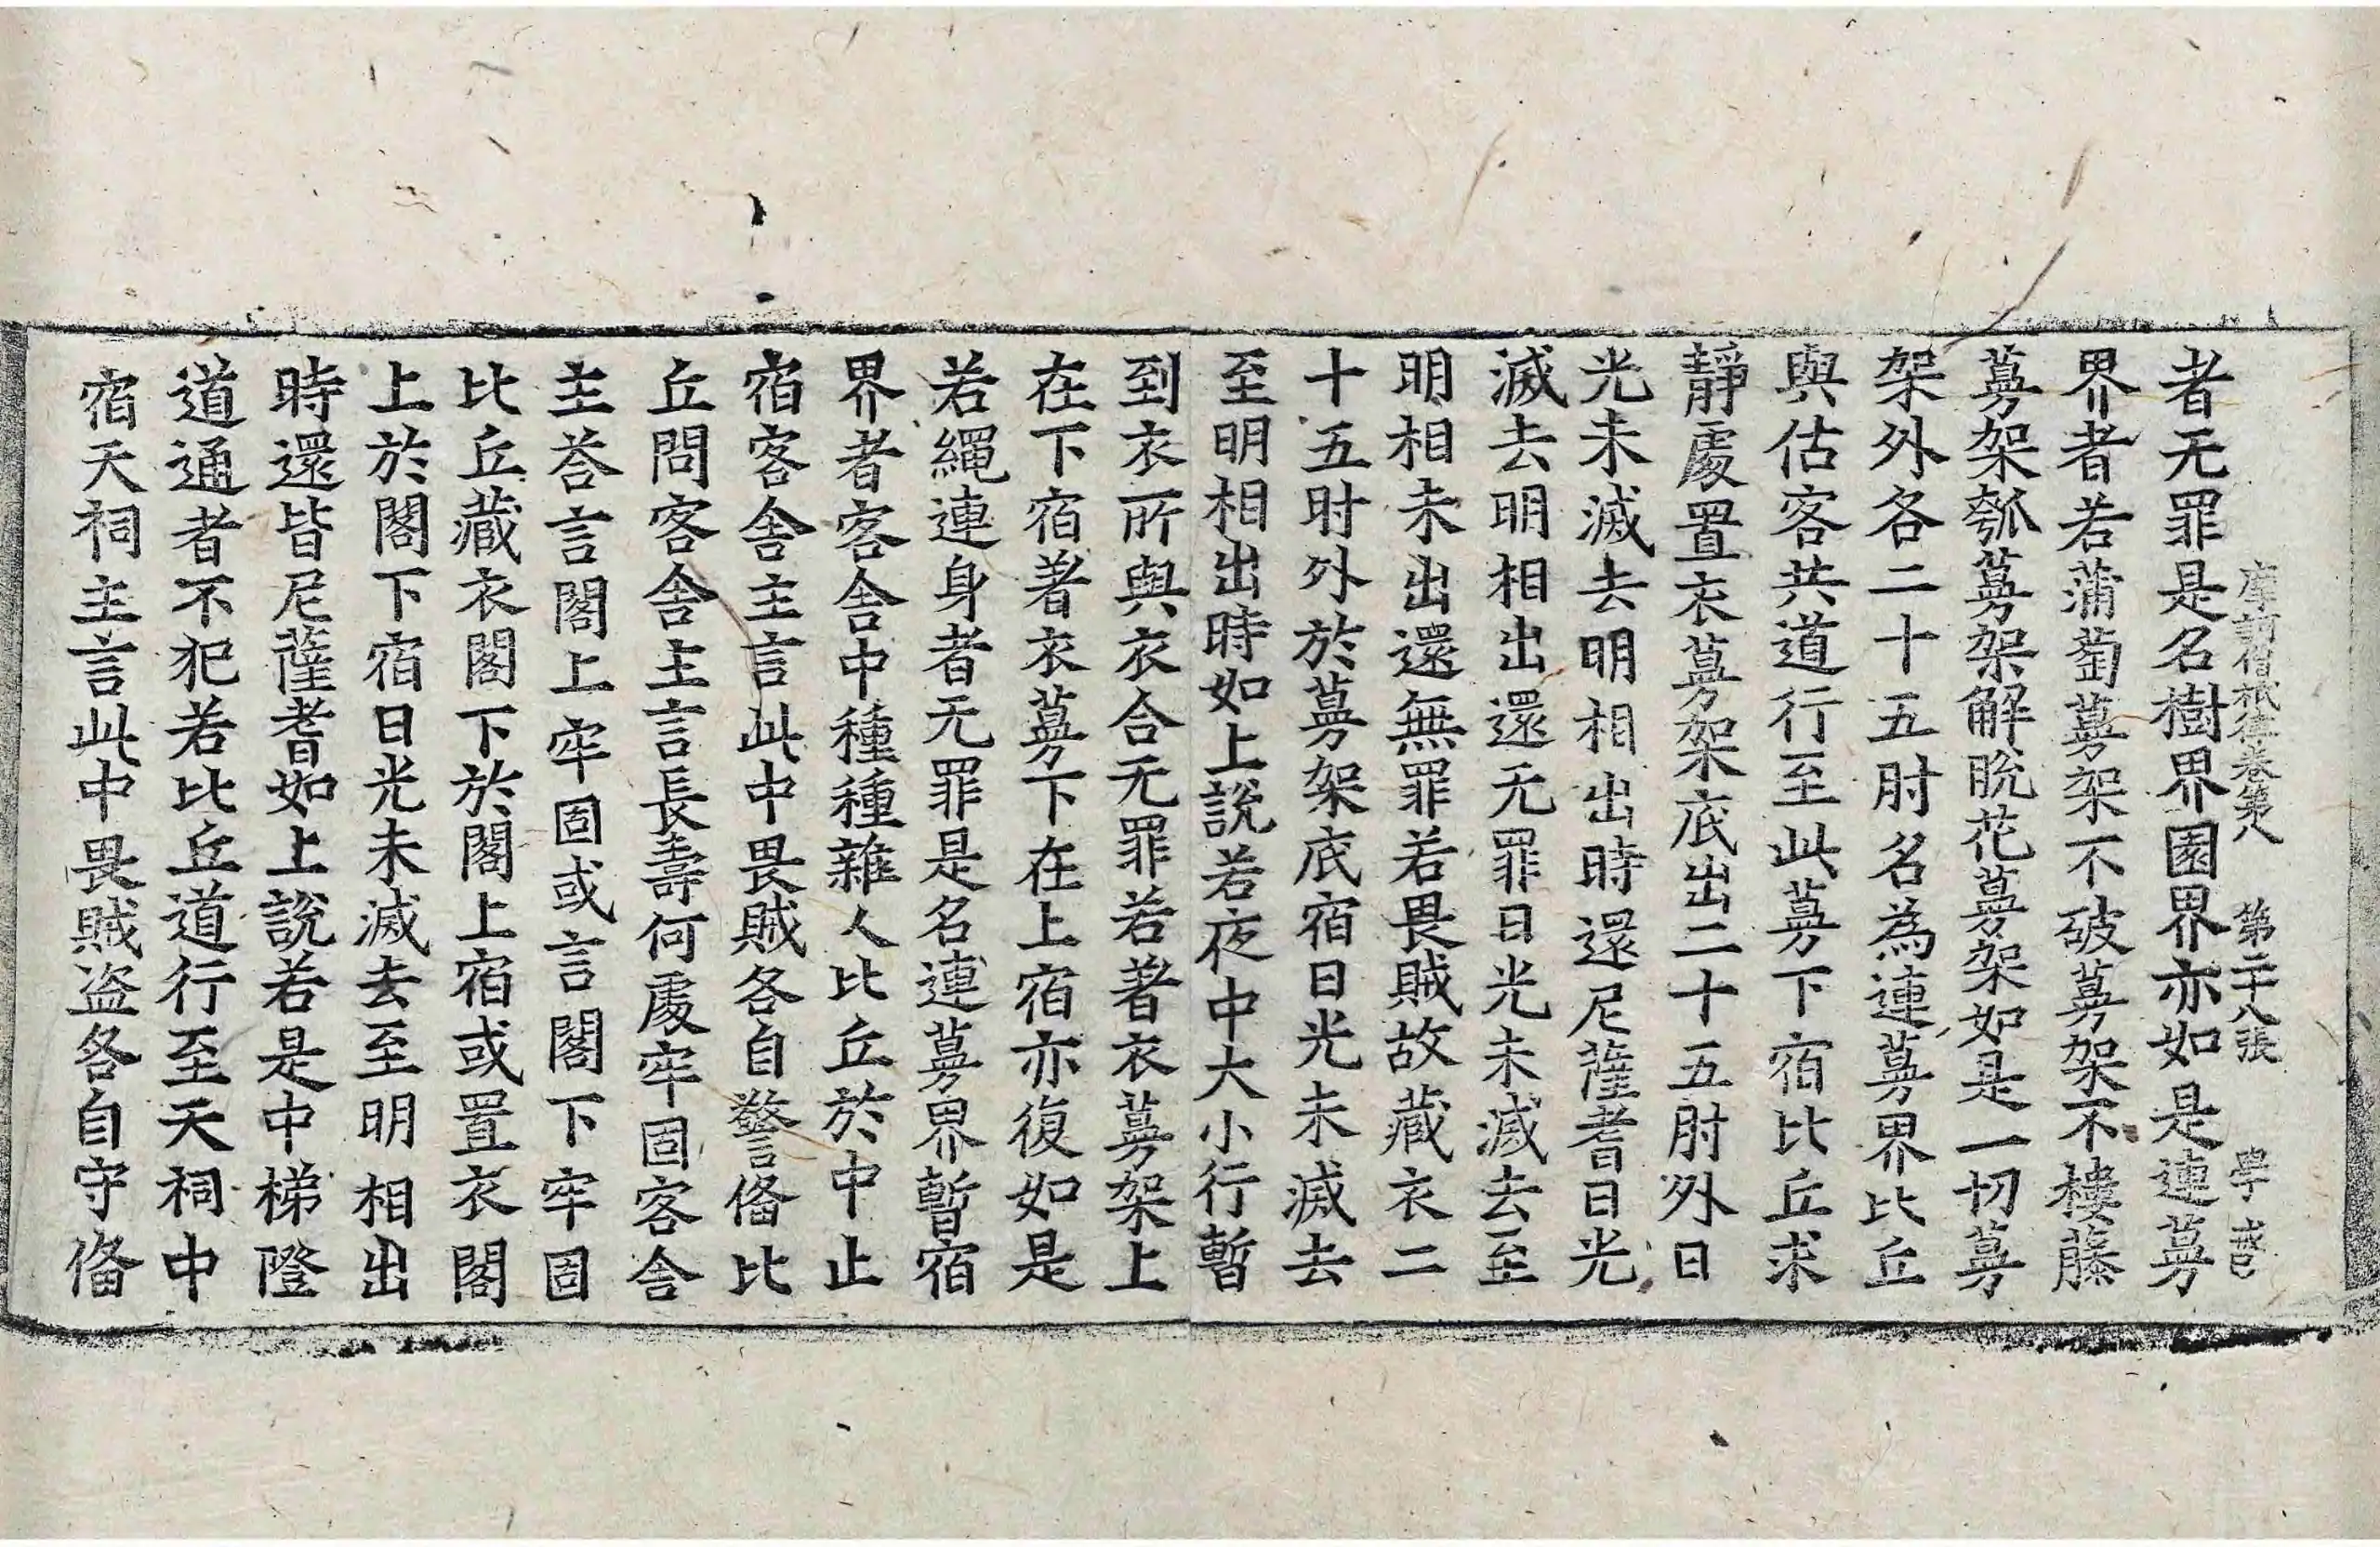 摩訶僧祇律卷第八 第二十八張 學
者无罪是名樹界園界亦如是連蔓
界者若蒲萄蔓架不破蔓架不棲藤
蔓架瓠蔓架解脫花蔓架如是一切蔓
架外各二十五肘名為連蔓界比丘
與估客共道行至此蔓下宿比丘求
靜處置衣蔓架底出二十五肘外日
光未滅去明相出時還尼薩耆日光
滅去明相出還无罪日光未滅去至
明相未出還無罪若畏賊故藏衣二
十五肘外於蔓架底宿日光未滅去
至明相出時如上說若夜中大小行暫
到衣所與衣合无罪若著衣蔓架上
在下宿著衣蔓下在上宿亦復如是
若繩連身者无罪是名連蔓界暫宿
界者客舍中種種雜人比丘於中止
宿客舍主言此中畏賊各自警俻比
丘問客舍主言長壽何處牢固客舍
主荅言閣上牢固或言閣下牢固
比丘藏衣閣下於閣上宿或置衣閣
上於閣下宿日光未滅去至明相出
時還皆尼薩耆如上說若是中梯隥
道通者不犯若比丘道行至天祠中
宿天祠主言此中畏賊盜各自守俻